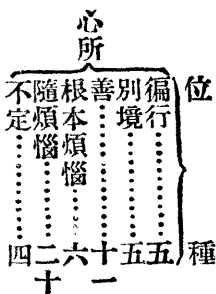 心所
位種
徧行………五
別境………五
善………十一
根本煩惱………六
隨煩惱………二十
不定………四